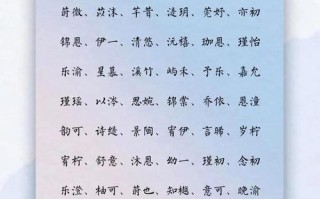 蔚微、苡沫、芊昔、涟玥、莞妤、亦初
锦恩、伊一、清悠、沅禧、珈恩、瑾怡
乐渝、星慕、溪竹、屿禾、予乐、嘉允
瑾瑶、以涔、思婉、锦棠、乔依、恩潼
韵可、诗缇、景陶、宥伊、言晞、岁柠
宥柠、舒意、沐恩、幼一、瑾初、念初
乐滢、柚可、蔚也、知樾、意可、晚渝